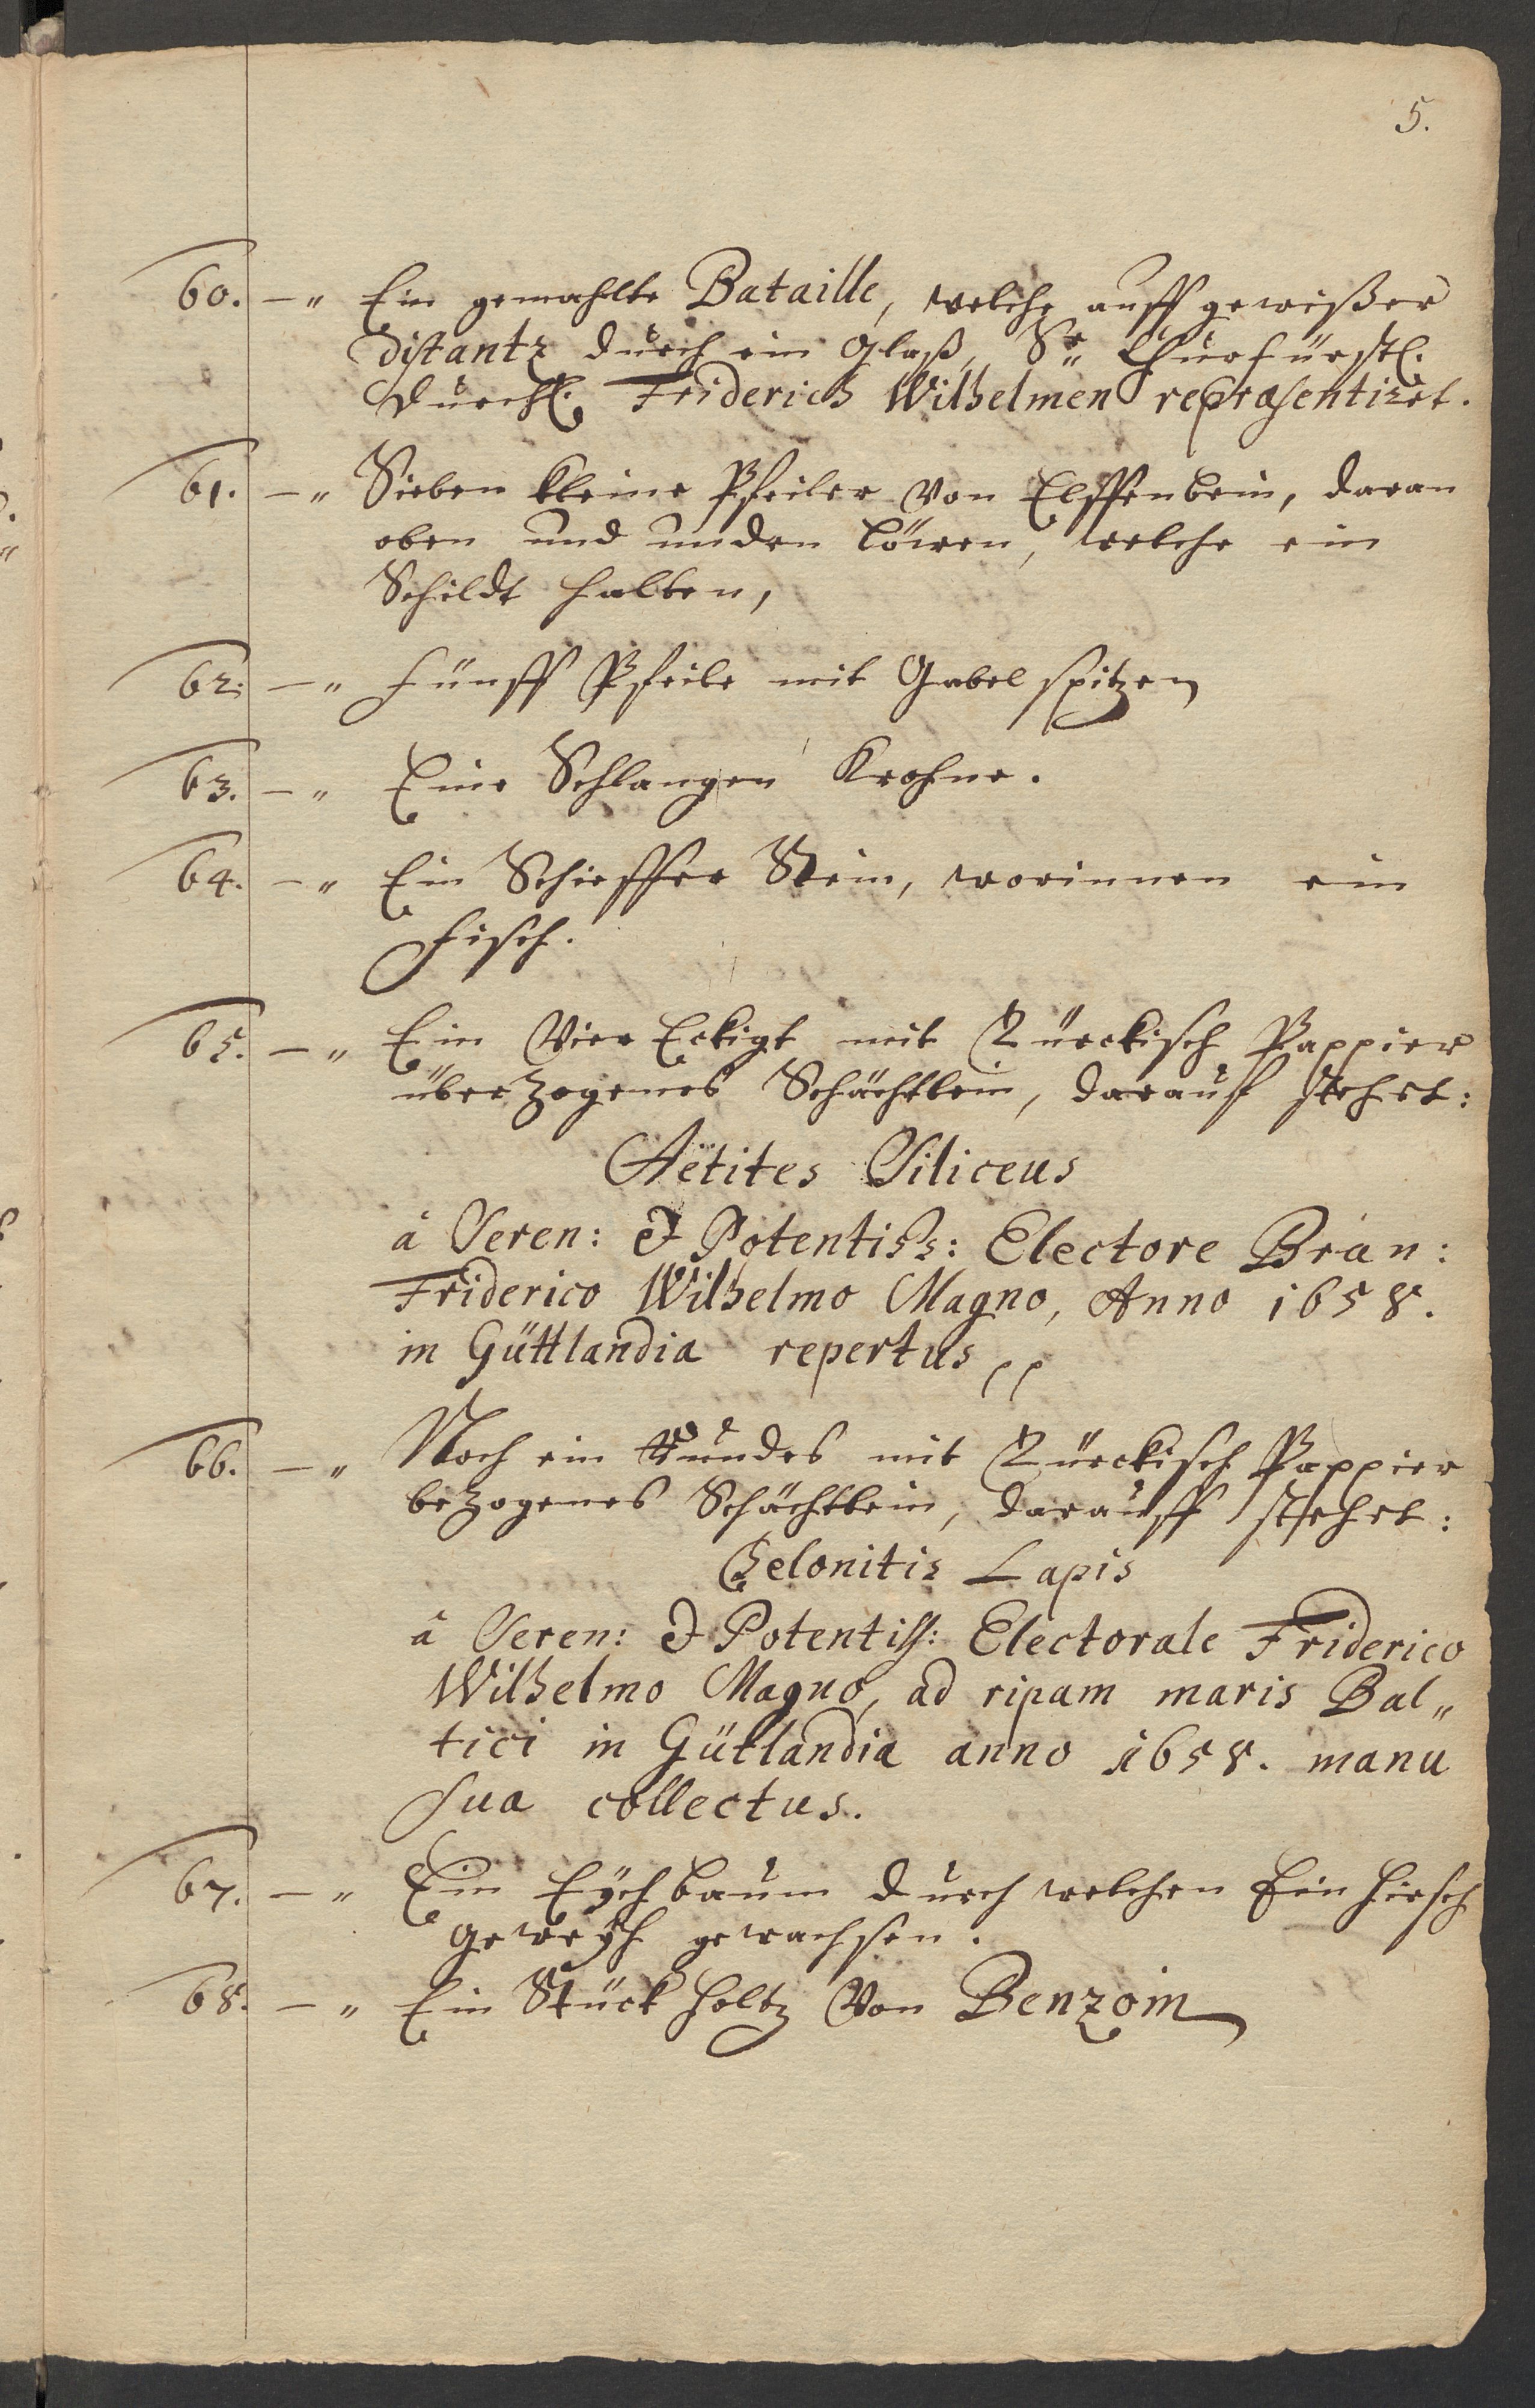 5.
60. —„ Ein gemahlte Bataille, welche auff gewißer
distantz durch ein Glaß, Sr. Churfürstl.
Durchl. Friderich Wilhelmen repræsentiret.
61. —„ Sieben kleine Pfeiler von Elffenbein, daran
oben und unden Löwen, welche ein
Schildt halten,
62. —„ Fünff Pfeile mit Gabel spitzen
63. —„ Eine Schlangen Krohne.
64. —„ Ein Schieffer Stein, worinnen ein
Fisch.
65. —„ Ein Vier Eckigt mit Türckisch Pappier
überzogenes Schächtlein, darauf stehet:
Aëtites Siliceus
à Seren: & Potentiss: Electore Bran:
Friderico Wilhelmo Magno, Anno 1658.
in Güttlandia repertus
66. —„ Noch ein Rundes mit Türckisch Pappier
bezogenes Schächtlein, darauff stehet:
Chelonitis Lapis
à Seren: & Potentiss: Electorale Friderico
Wilhelmo Magno, ad ripam maris Bal„
tici in Gütlandia anno 1658. manu
sua collectus.
67. —„ Ein Eychbaum durch welchen Ein Hirsch
geweyh gewachsen.
68. —„ Ein Stück Holtz von Benzoin